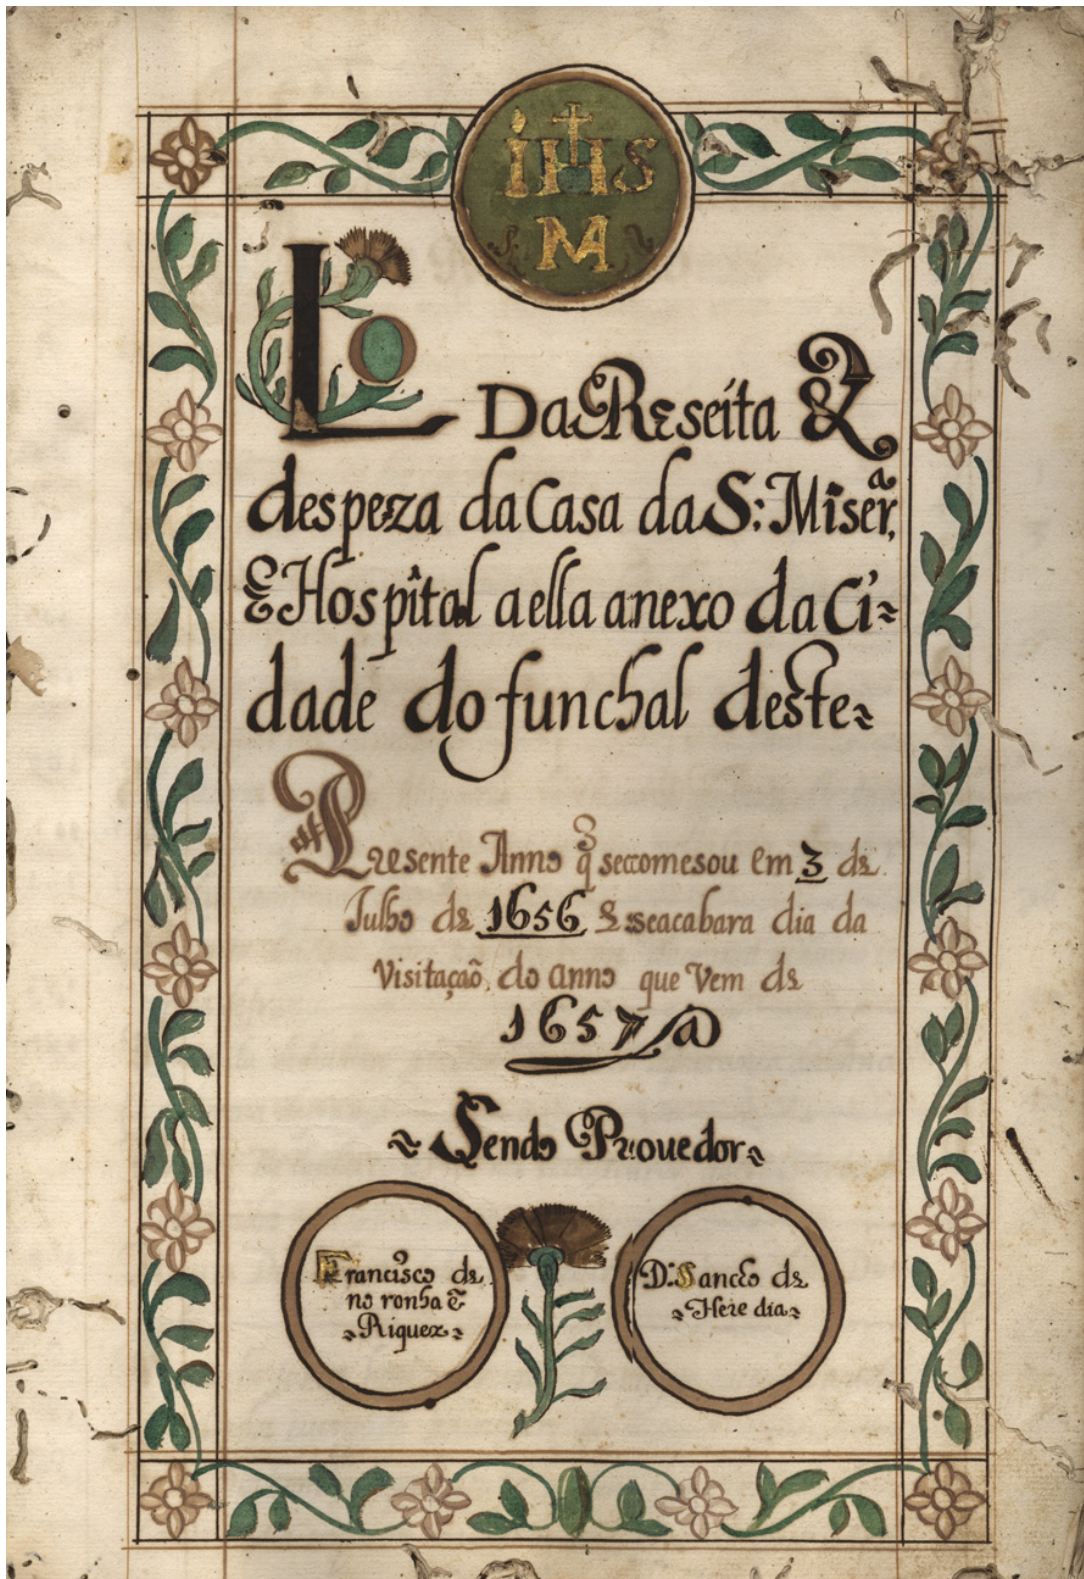 IHS
M
Lo
Da Reseita &
despeza da Casa da S: Miserª,
& Hospital aella anexo da Ci-
dade do funchal deste
Presente Anno q̃ seccomesou em 3 de
Julho de 1656 & seacabara dia da
Visitaçaõ, do anno que Vem de
1657
~ Sendo Prouedor ~
Francisco de
noronha ẽ
~ Riquez ~
D. Sancho de
~ Here dia ~